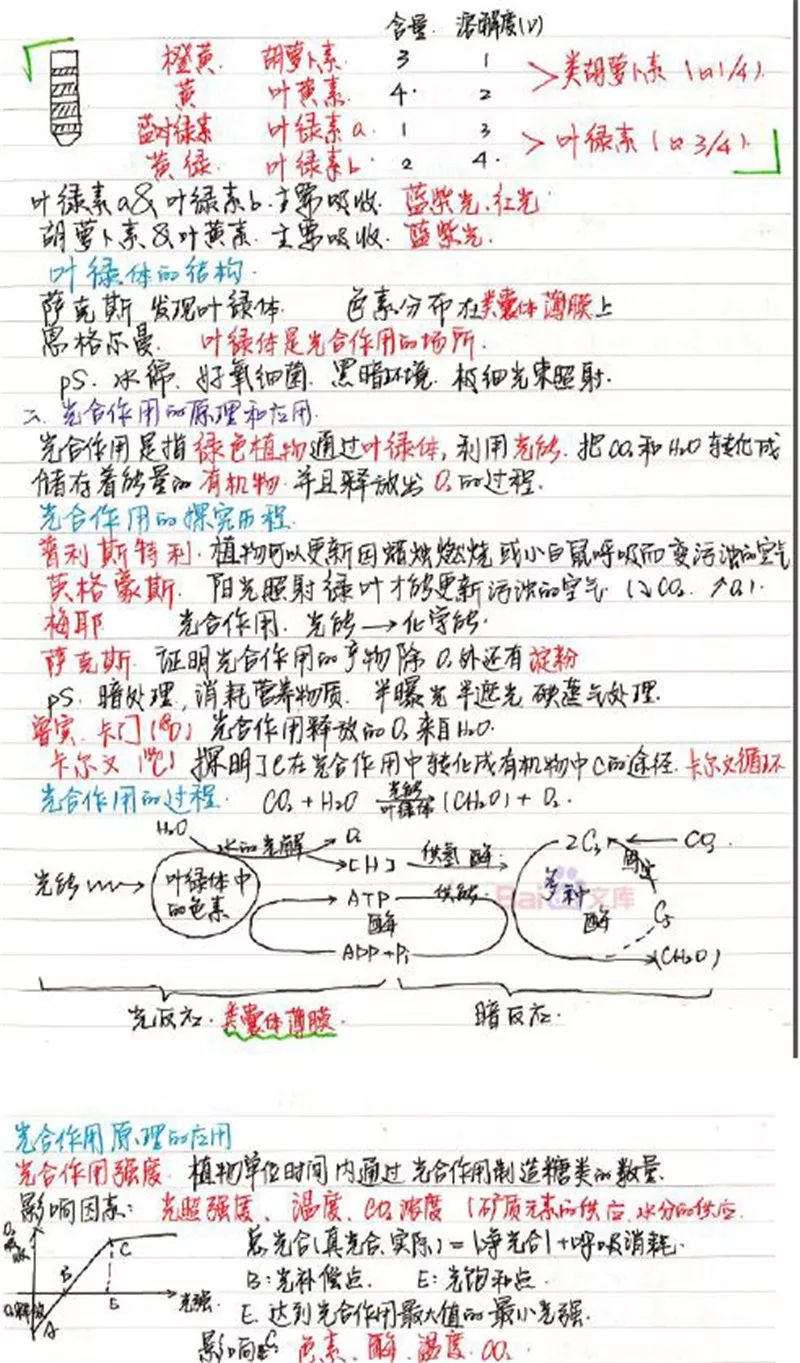 含量 溶解度(V)
橙黄 胡萝卜素 3 1 >类胡萝卜素 (占1/4)
黄 叶黄素 4 2
叶绿素a 1 3 >叶绿素 (占3/4)
黄绿 叶绿素b 2 4
叶绿素a & 叶绿素b 主要吸收 蓝紫光、红光
胡萝卜素 & 叶黄素 主要吸收 蓝紫光
叶绿体的结构
萨克斯 发现叶绿体 色素分布在类囊体薄膜上
恩格尔曼 叶绿体是光合作用的场所
PS. 水绵、好氧细菌 黑暗环境 极细光束照射.
二、光合作用的原理和应用
光合作用是指绿色植物通过叶绿体, 利用光能, 把CO₂和H₂O转化成
储存着能量的有机物 并且释放出O₂的过程.
光合作用的探究历程
普利斯特利. 植物可以更新因蜡烛燃烧或小白鼠呼吸而变污浊的空气
英格豪斯. 阳光照射绿叶才能更新污浊的空气 (↘CO₂ ↗O₂)
梅耶 光合作用. 光能→化学能.
萨克斯 证明光合作用的产物除O₂外还有淀粉
PS. 暗处理, 消耗营养物质. 半曝光半遮光 碘蒸气处理.
鲁宾、卡门(¹⁸O) 光合作用释放的O₂来自H₂O.
卡尔文(¹⁴C) 探明了C在光合作用中转化成有机物中C的途径. 卡尔文循环
光合作用的过程 CO₂ + H₂O 光能 叶绿体 (CH₂O) + O₂.
H₂O 水的光解 O₂ 2C₃ CO₂
[H] 供氢 酶 固定
光能 叶绿体中的色素 ATP 供能 多种酶
酶 C₅
ADP+Pi (CH₂O)
光反应. 类囊体薄膜. 暗反应.
Bai 文库
光合作用原理的应用
光合作用强度. 植物单位时间内通过光合作用制造糖类的数量.
影响因素: 光照强度、温度、CO₂浓度 (矿质元素的供应、水分的供应
O₂吸收 C 总光合(真光合、实际) = |净光合| + 呼吸消耗.
B B:光补偿点. E:光饱和点.
O₂释放 A E 光强 E. 达到光合作用最大值的最小光强.
色素、酶、温度、CO₂